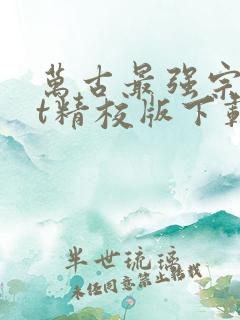 萬古最强宗
t精校版下載
半世琉璃
未经同意禁止转载